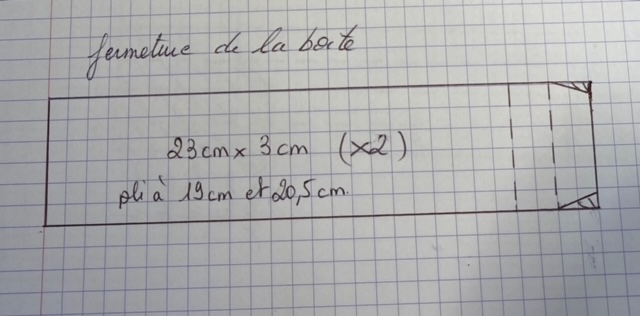 fermeture de la boîte
23cm x 3cm (x2)
pli à 19cm et 20,5cm.